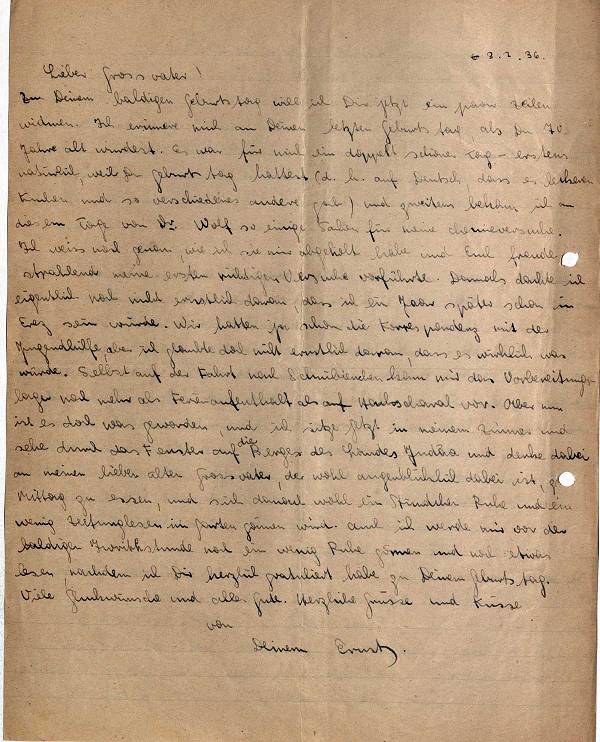 8.2.36.
Lieber Grossvater!
Zu Deinem baldigen Geburtstag will ich Dir jetzt ein paar Zeilen
widmen. Ich erinnere mich an Deinen letzten Geburtstag, als Du 70
Jahre alt wurdest. Es war für mich ein doppelt schöner Tag – erstens
natürlich, weil Du Geburtstag hattest (d. h. auf Deutsch, dass es leckeren
Kuchen und so verschiedenes andere gab) und zweitens bekam ich an
diesem Tage von Dr. Wolf so einige Sachen für meine Chemieversuche.
Ich weiss noch genau, wie ich sie mir abgeholt habe und Euch freude-
strahlend meine ersten richtigen Versuche vorführte. Damals dachte ich
eigentlich noch nicht ernstlich daran, dass ich ein Jaar später schon in
Erez sein würde. Wir hatten ja schon die Korrespondenz mit der
Jugendhilfe, aber ich glaubte doch nicht ernstlich daran, dass es wirklich was
würde. Selbst auf der Fahrt nach Schnibinchen kam mir das Vorbereitungs-
lager noch mehr als Ferienaufenthalt als auf Hachscharah vor. Aber nun
ist es doch was geworden, und ich sitze jetzt in meinem Zimmer und
sehe durch das Fenster auf die Berge des Landes Judäa und denke dabei
an meinen lieben alten Grossvater, der wohl augenblicklich dabei ist,
Mittag zu essen, und sich danach wohl ein Stündchen Ruhe und ein
wenig Zeitunglesen im Garten gönnen wird. Auch ich werde mir vor der
baldigen Iwrithstunde noch ein wenig Ruhe gönnen und noch etwas
lesen, nachdem ich Dir herzlich gratuliert habe zu Deinem Geburtstag.
Viele Glückwünsche und alles Gute. Herzliche Grüsse und Küsse
von
Deinem Ernst.